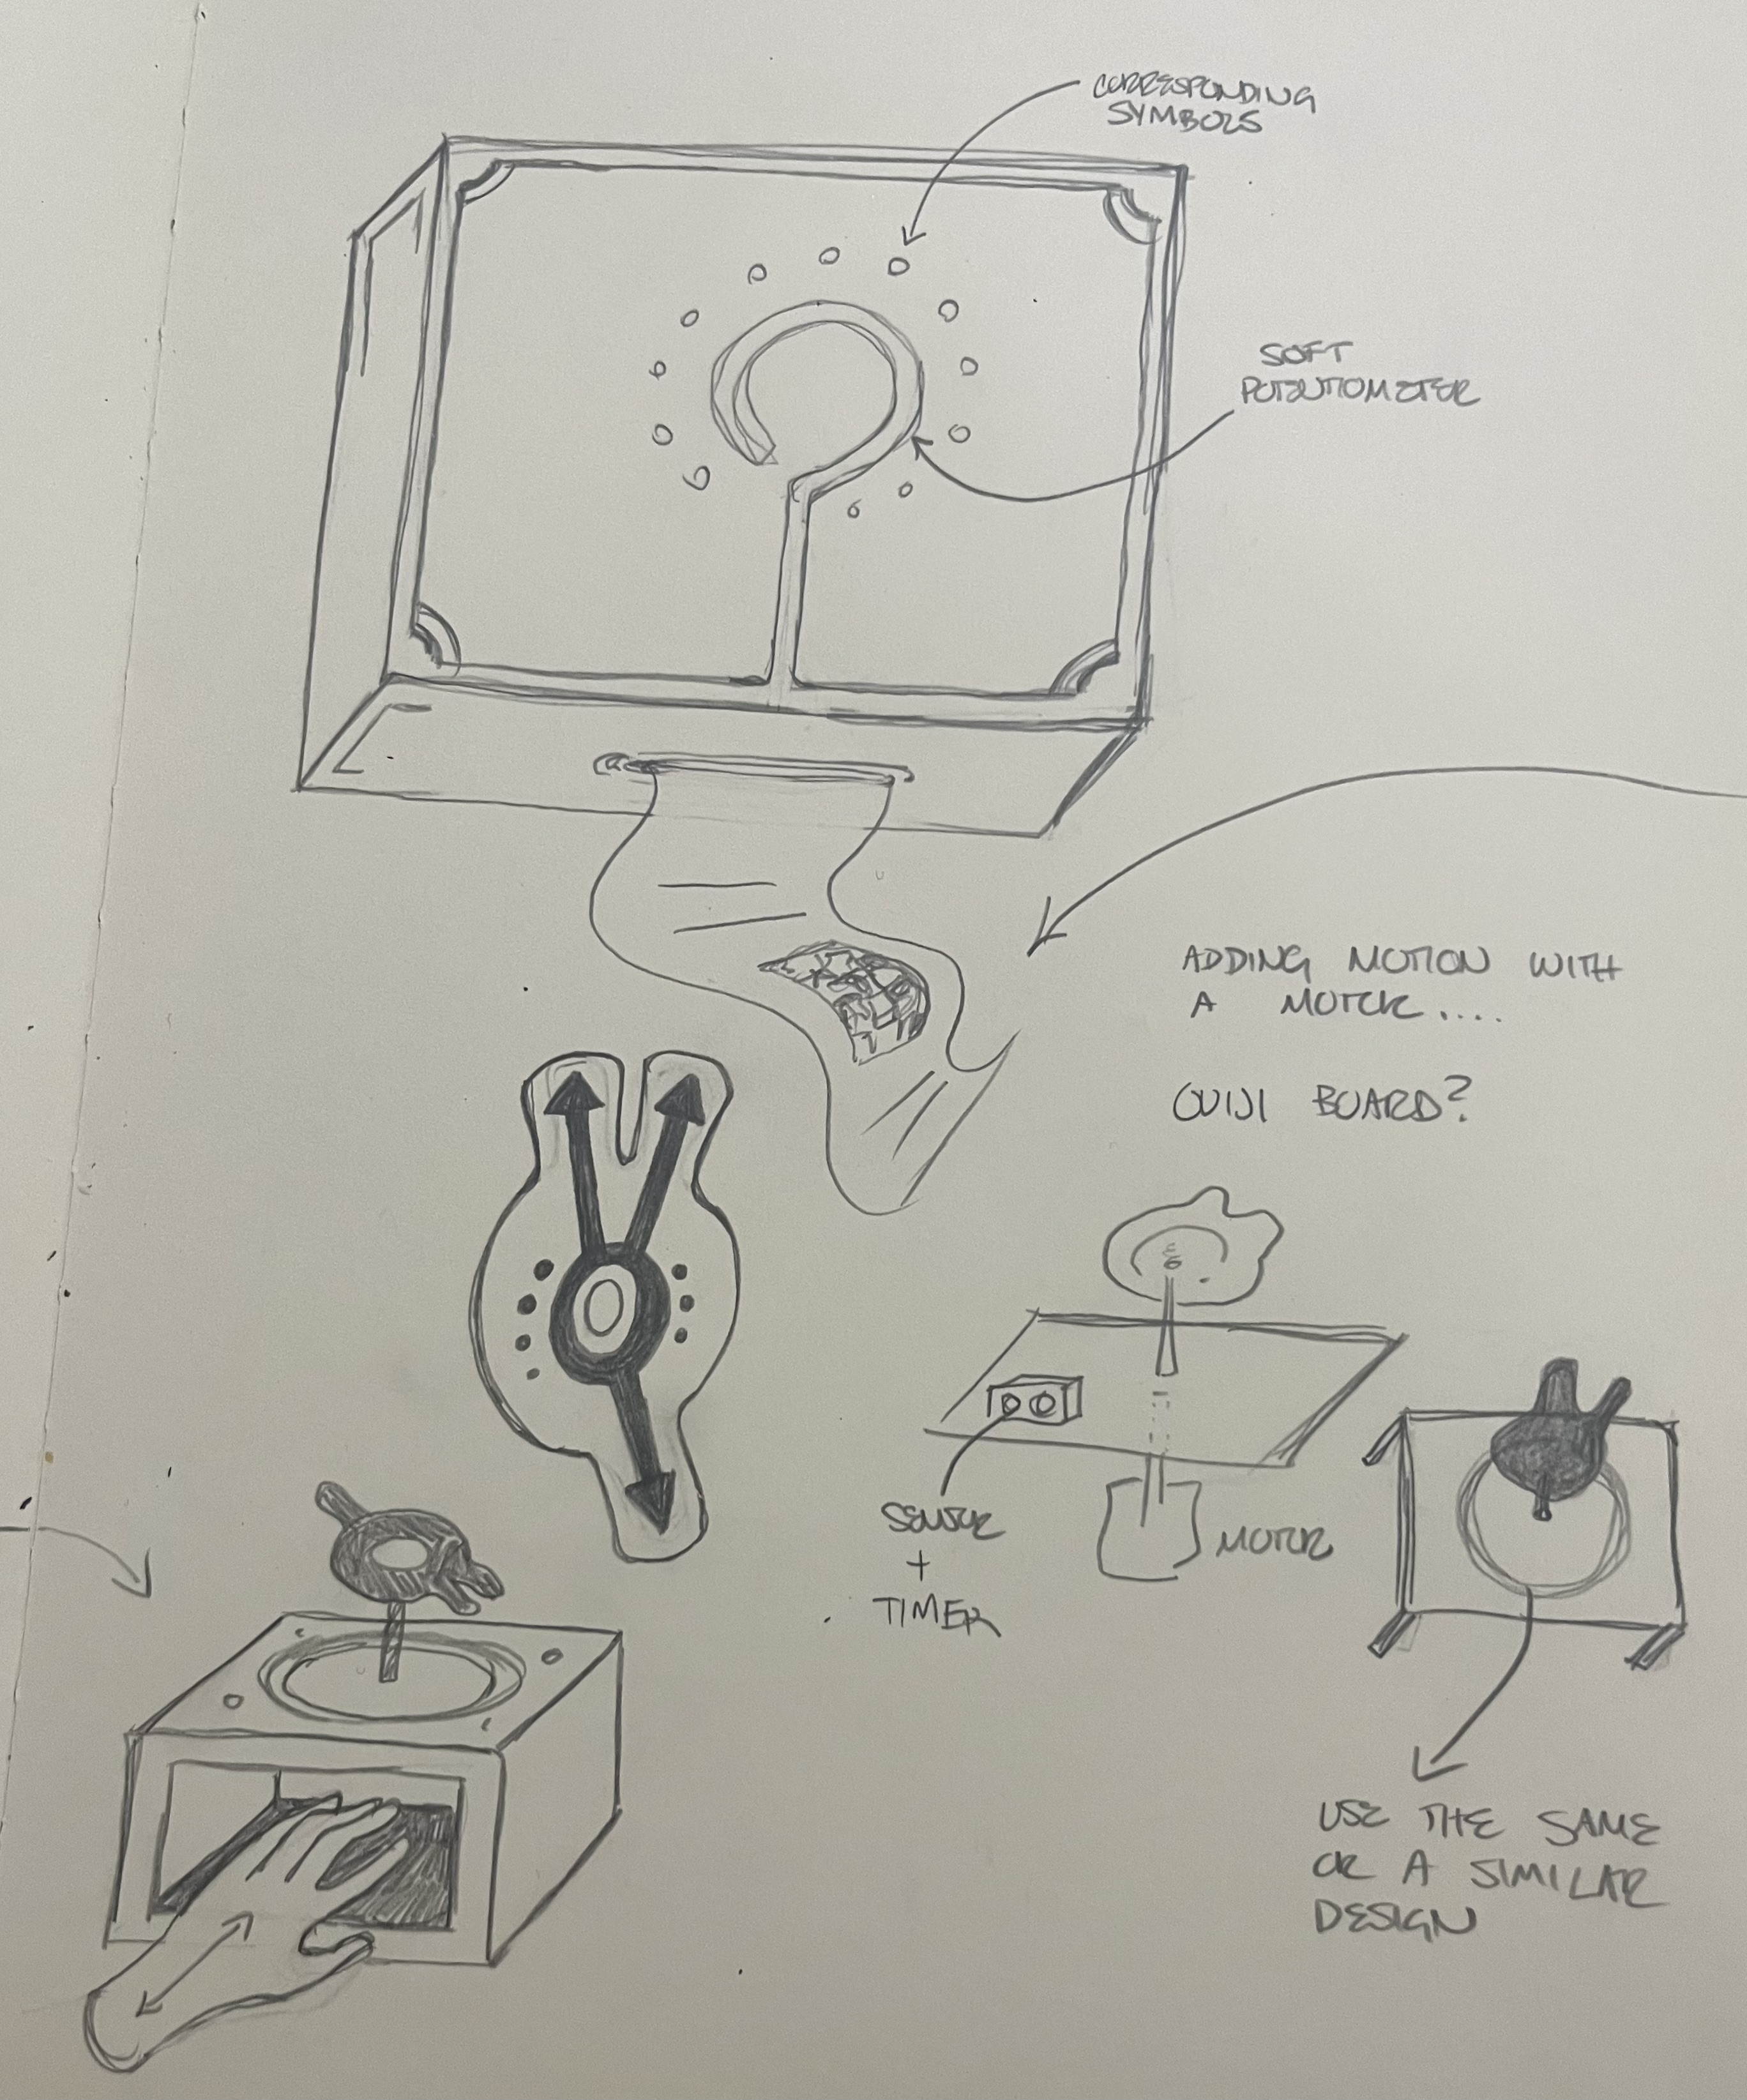 CORRESPONDING
SYMBOLS
SOFT
POTENTIOMETER
ADDING MOTION WITH
A MOTOR....
OUIJI BOARD?
SENSOR
+
TIMER
MOTOR
USE THE SAME
OR A SIMILAR
DESIGN